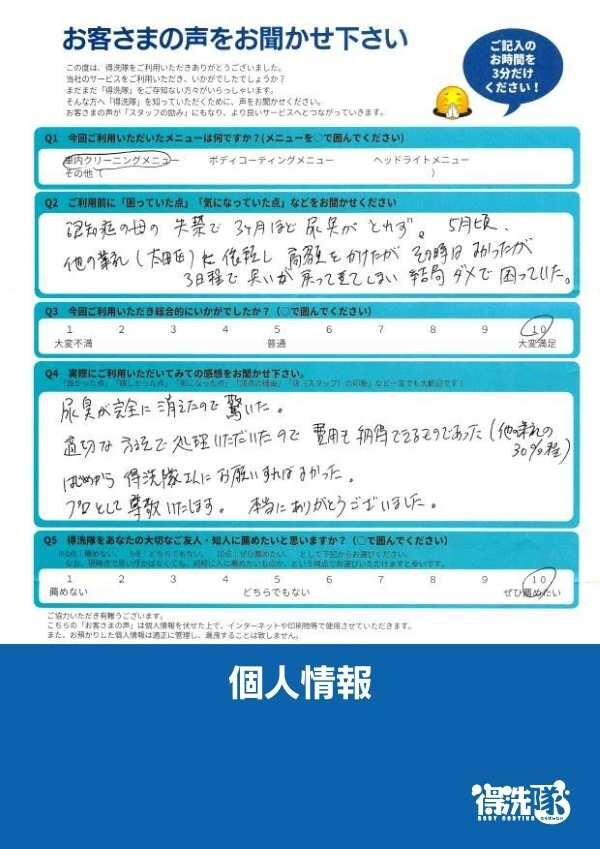 お客さまの声をお聞かせ下さい
ご記入の
お時間を
3分だけ
ください!
この度は、得洗隊をご利用いただきありがとうございました。
当社のサービスをご利用いただき、いかがでしたでしょうか?
まだまだ「得洗隊」をご存知ない方々がいらっしゃいます。
そんな方へ「得洗隊」を知っていただくために、声をお聞かせください。
お客さまの声が「スタッフの励み」にもなり、より良いサービスへとつながっていきます。
Q1 今回ご利用いただいたメニューは何ですか?(メニューを○で囲んでください)
車内クリーニングメニュー ボディコーティングメニュー ヘッドライトメニュー
その他( )
Q2 ご利用前に「困っていた点」「気になっていた点」などをお聞かせください
認知症の母の失禁で3ヶ月ほど尿臭がとれず。5月頃、
他の業者(太田市)に依頼し高額をかけたがその時はよかったが
3日程で臭いが戻ってきてしまい結局ダメで困っていた。
Q3 今回ご利用いただき総合的にいかがでしたか?(○で囲んでください)
1 2 3 4 5 6 7 8 9 10
大変不満 普通 大変満足
Q4 実際にご利用いただいてみての感想をお聞かせ下さい。
尿臭が完全に消えたので驚いた。
適切な方法で処理いただいたので費用も納得できるものであった(他の業者の
30%程)
はじめから得洗隊さんにお願いすればよかった。
プロとして尊敬いたします。本当にありがとうございました。
Q5 得洗隊をあなたの大切なご友人・知人に薦めたいと思いますか?(○で囲んでください)
1 2 3 4 5 6 7 8 9 10
薦めない どちらでもない ぜひ薦めたい
ご協力いただき有難うございます。
こちらの「お客さまの声」は個人情報を伏せた上で、インターネットや印刷物等で使用させていただきます。
また、お預かりした個人情報は適正に管理し、漏洩することは致しません。
個人情報
得洗隊